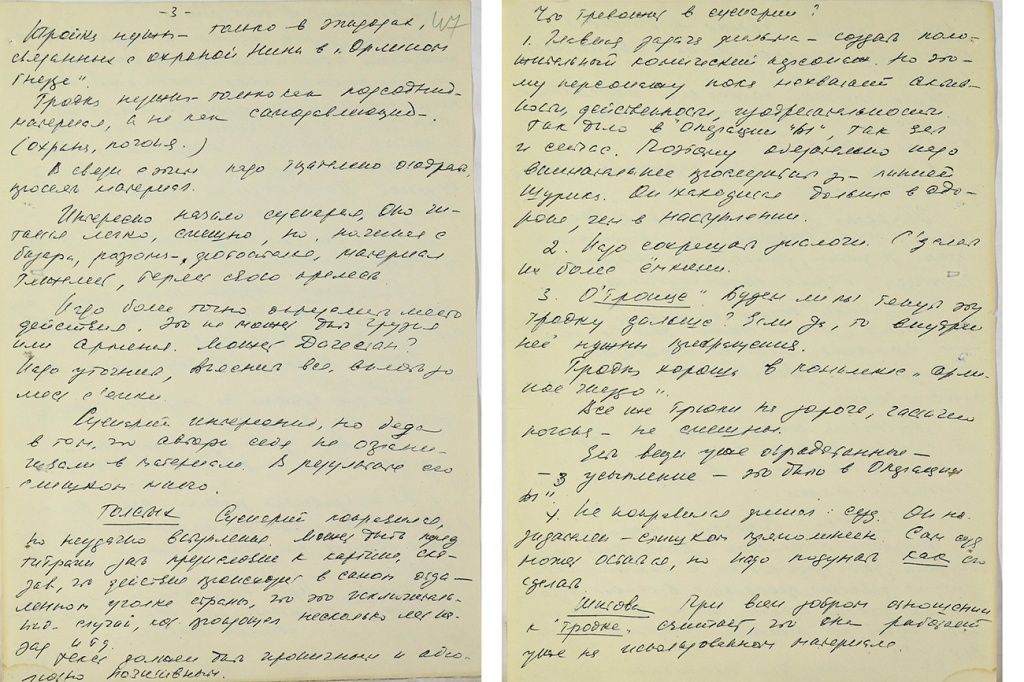 - 3 -
47
Тройка нужна только в эпизодах,
связанных с охраной Нины в "Орлином
гнезде".
Тройка нужна только как подсобный
материал, а не как самодовлеющий.
(Охрана, погоня.)
В связи с этим надо тщательно отобрать,
просеять материал.
Интересно начало сценария, оно чи-
тается легко, смешно, но, начиная с
базара, разговора, материал
тяжелеет, теряет свою прелесть.
Надо более точно определить место
действия. Это не может быть Грузия
или Армения. Может Дагестан?
Надо уточнить, выяснить все, вплоть до
места съемки.
Сценарий интересный, но беда
в том, что авторы себя не ограни-
чивали в материале. В результате его
слишком много.
Толстых Сценарий понравился,
но неудачно вступление. Может быть перед
титрами дать предисловие к картине, ска-
зав, что действие происходит в самом отда-
ленном уголке страны, что это исключитель-
ный случай, кот. произошел несколько лет на-
зад и т.д.
Текст должен быть ироничным и абсо-
лютно позитивным.
Что тревожит в сценарии?
1. Главная задача фильма – создать поло-
жительный комический персонаж. Но это-
му персонажу пока не хватает актив-
ности, действенности, изобретательности.
Так было в "Операции "Ы", так есть
и сейчас. Поэтому обязательно надо
внимательнее проследить за линией
Шурика. Он находится больше в обо-
роне, чем в наступлении.
2. Надо сокращать диалоги. Сделать
их более ёмкими.
3. О "Троице". Будем ли мы тянуть эту
тройку дальше? Если да, то внутри
неё нужны превращения.
Тройка хороша в комплексе "Орли-
ное гнездо".
Все их трюки на дороге, частично
погоня – не смешны.
Есть вещи уже отработанные –
– усыпление – это было в Операции
Ы".
4. Не понравился финал: суд. Он на-
зидателен – слишком прямолинеен. Сам суд
может остаться, но надо подумать как его
сделать
Шитова При всем добром отношении
к "Тройке" считает, что она работает
уже на использованном материале.